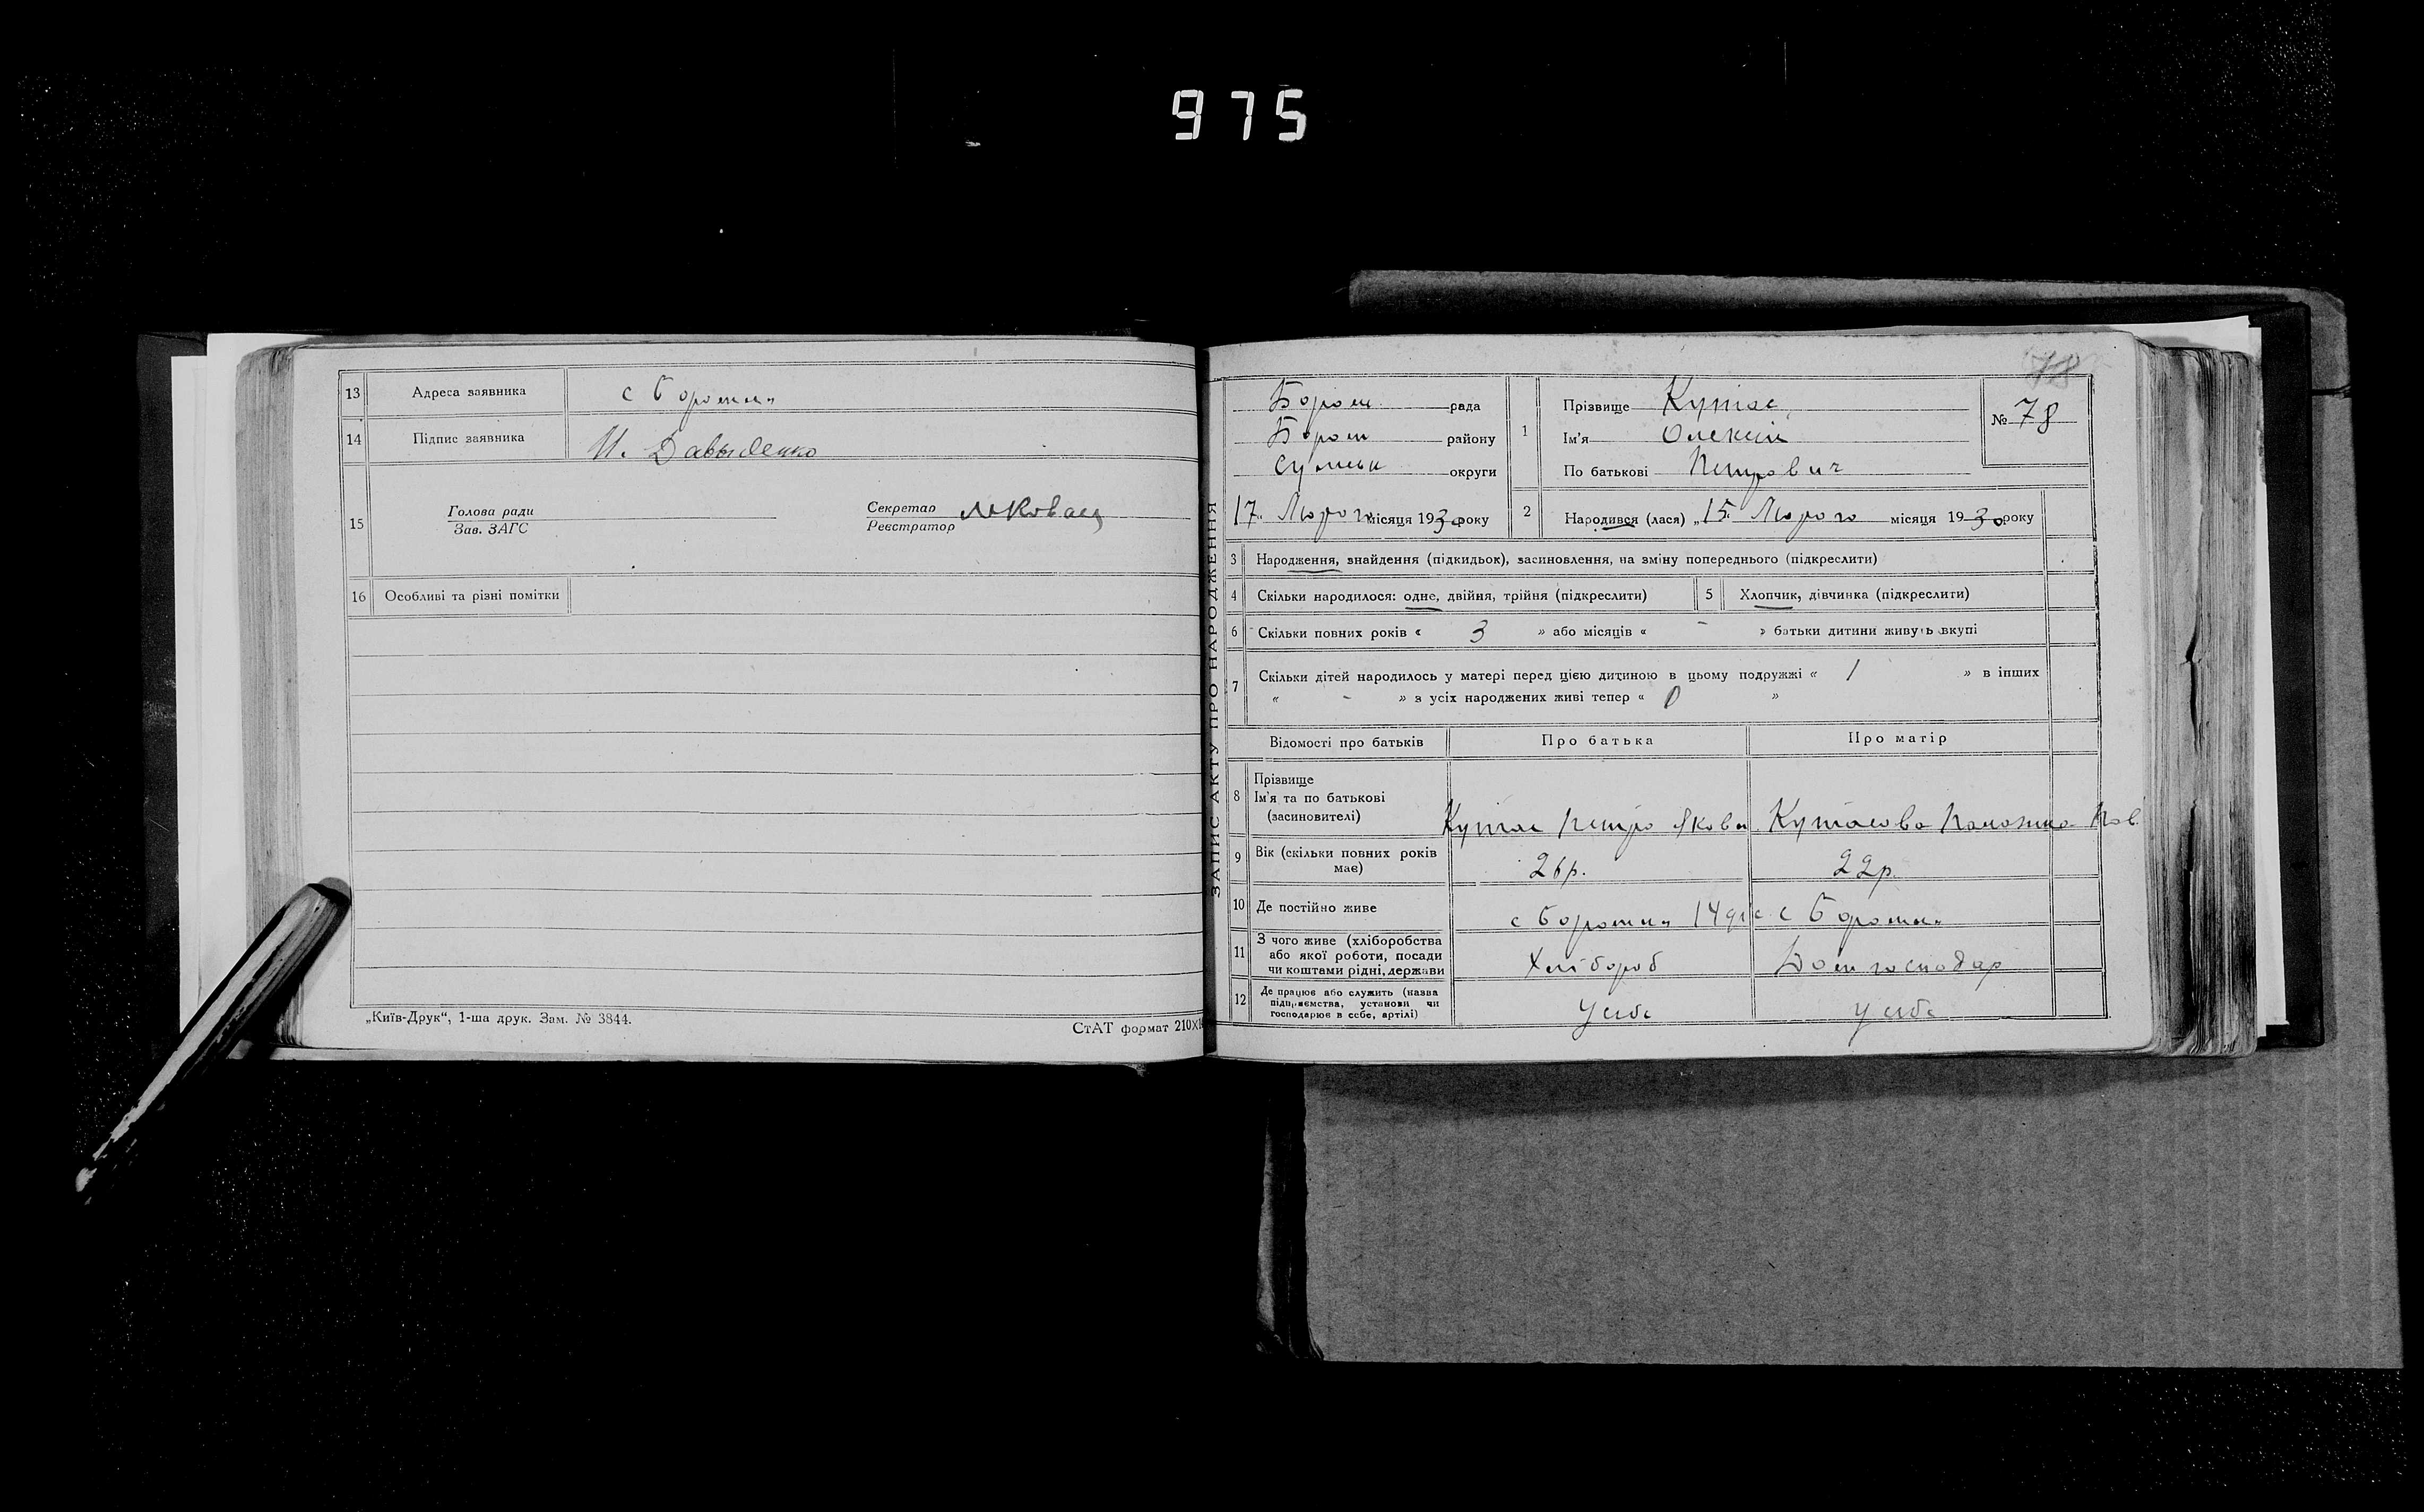 975
13 Адреса заявника с Боромля
14 Підпис заявника И. Давыденко
15 Голова ради
Зав. ЗАГС
Секретар
Реєстратор
16 Особливі та різні помітки
„Київ-Друк“, 1-ша друк. Зам. № 3844.
СтАТ формат 210X
ЗАПИС АКТУ ПРО НАРОДЖЕННЯ
78
Бором рада
Бором району
Сумськ округи
17 Марта місяця 1930 року
1 Прізвище Кутас
Ім'я Олексій
По батькові Петрович
№ 78
2 Народився (лася) „15“ Марта місяця 1930 року
3 Народження, знайдення (підкидьок), засиновлення, на зміну попереднього (підкреслити)
4 Скільки народилося: одне, двійня, трійня (підкреслити) 5 Хлопчик, дівчинка (підкреслити)
6 Скільки повних років « 3 » або місяців « - » батьки дитини живуть вкупі
7 Скільки дітей народилось у матері перед цією дитиною в цьому подружжі « 1 » в інших
« - » з усіх народжених живі тепер « 0 »
Відомості про батьків Про батька Про матір
8 Прізвище
Ім'я та по батькові
(засиновителі)
Кутас Петро Яков Кутасова Палажка Пав
9 Вік (скільки повних років
має)
26р. 22р
10 Де постійно живе с Боромля с Боромля
11 З чого живе (хліборобства
або якої роботи, посади
чи коштами рідні, держави
Хлібороб Домгосподар
12 Де працює або служить (назва
підприємства, установи чи
господарює в себе, артілі)
У себе У себе